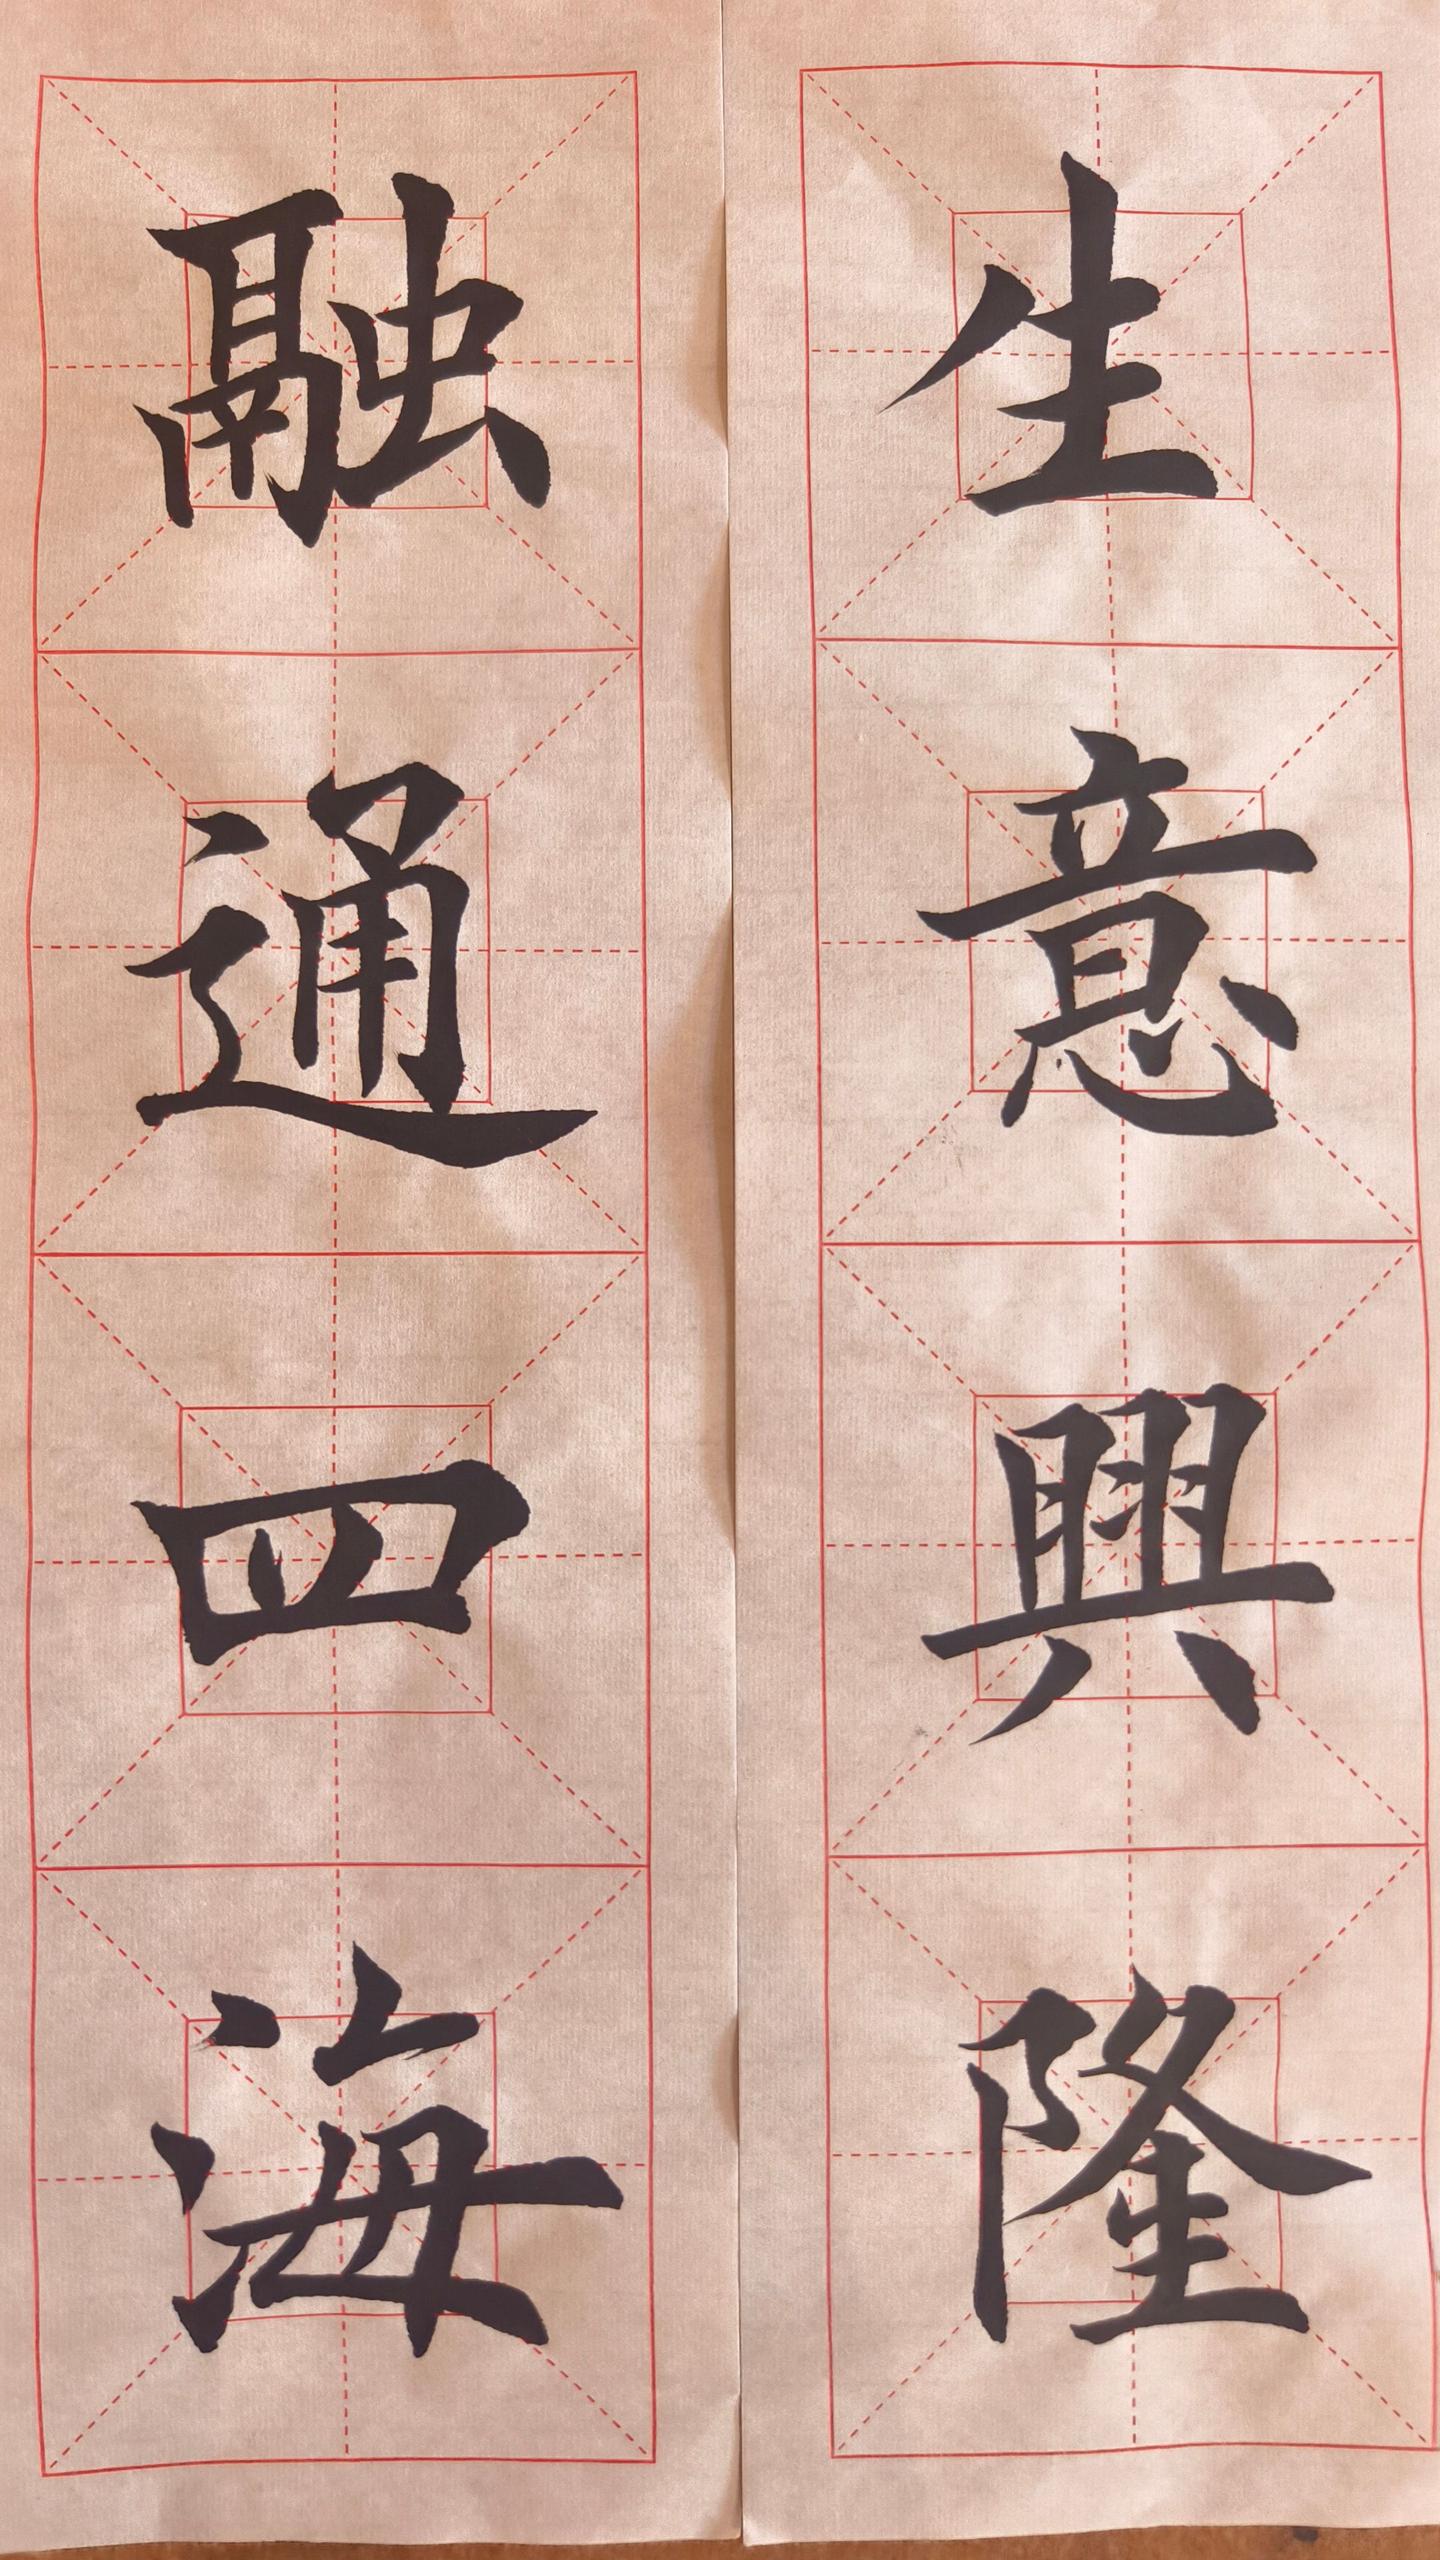 生意興隆
融通四海